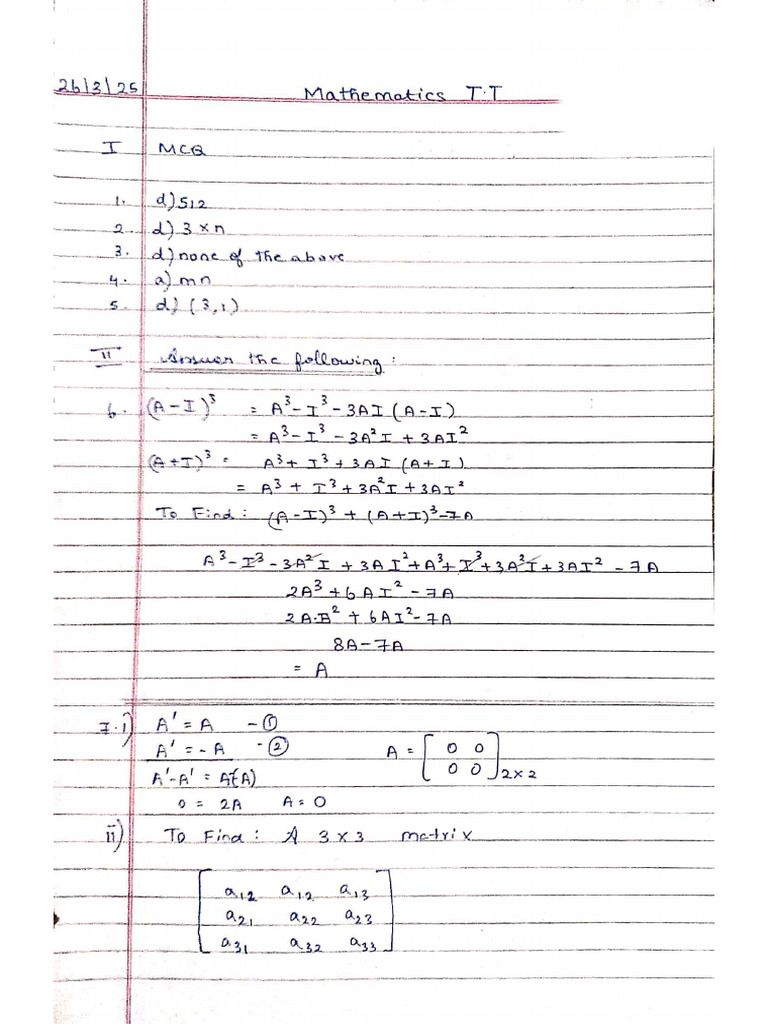 26/3/25 Mathematics T.T
I MCQ
1. d) 512
2. d) 3 × n
3. d) none of the above
4. a) mn
5. d) (3,1)
II Answer the following:
6. (A-I)³ = A³-I³-3AI(A-I)
= A³-I³-3A²I+3AI²
(A+I)³ = A³+I³+3AI(A+I)
= A³+I³+3A²I+3AI²
To Find: (A-I)³+(A+I)³-7A
A³-I³-3A²I+3AI²+A³+I³+3A²I+3AI²-7A
2A³+6AI²-7A
2A.A²+6AI²-7A
8A-7A
= A
7.i) A' = A -①
A' = -A -②
A = [0 0
0 0]2×2
A'-A' = A-(-A)
0 = 2A A=0
ii) To Find: A 3×3 matrix
a12 a12 a13
a21 a22 a23
a31 a32 a33